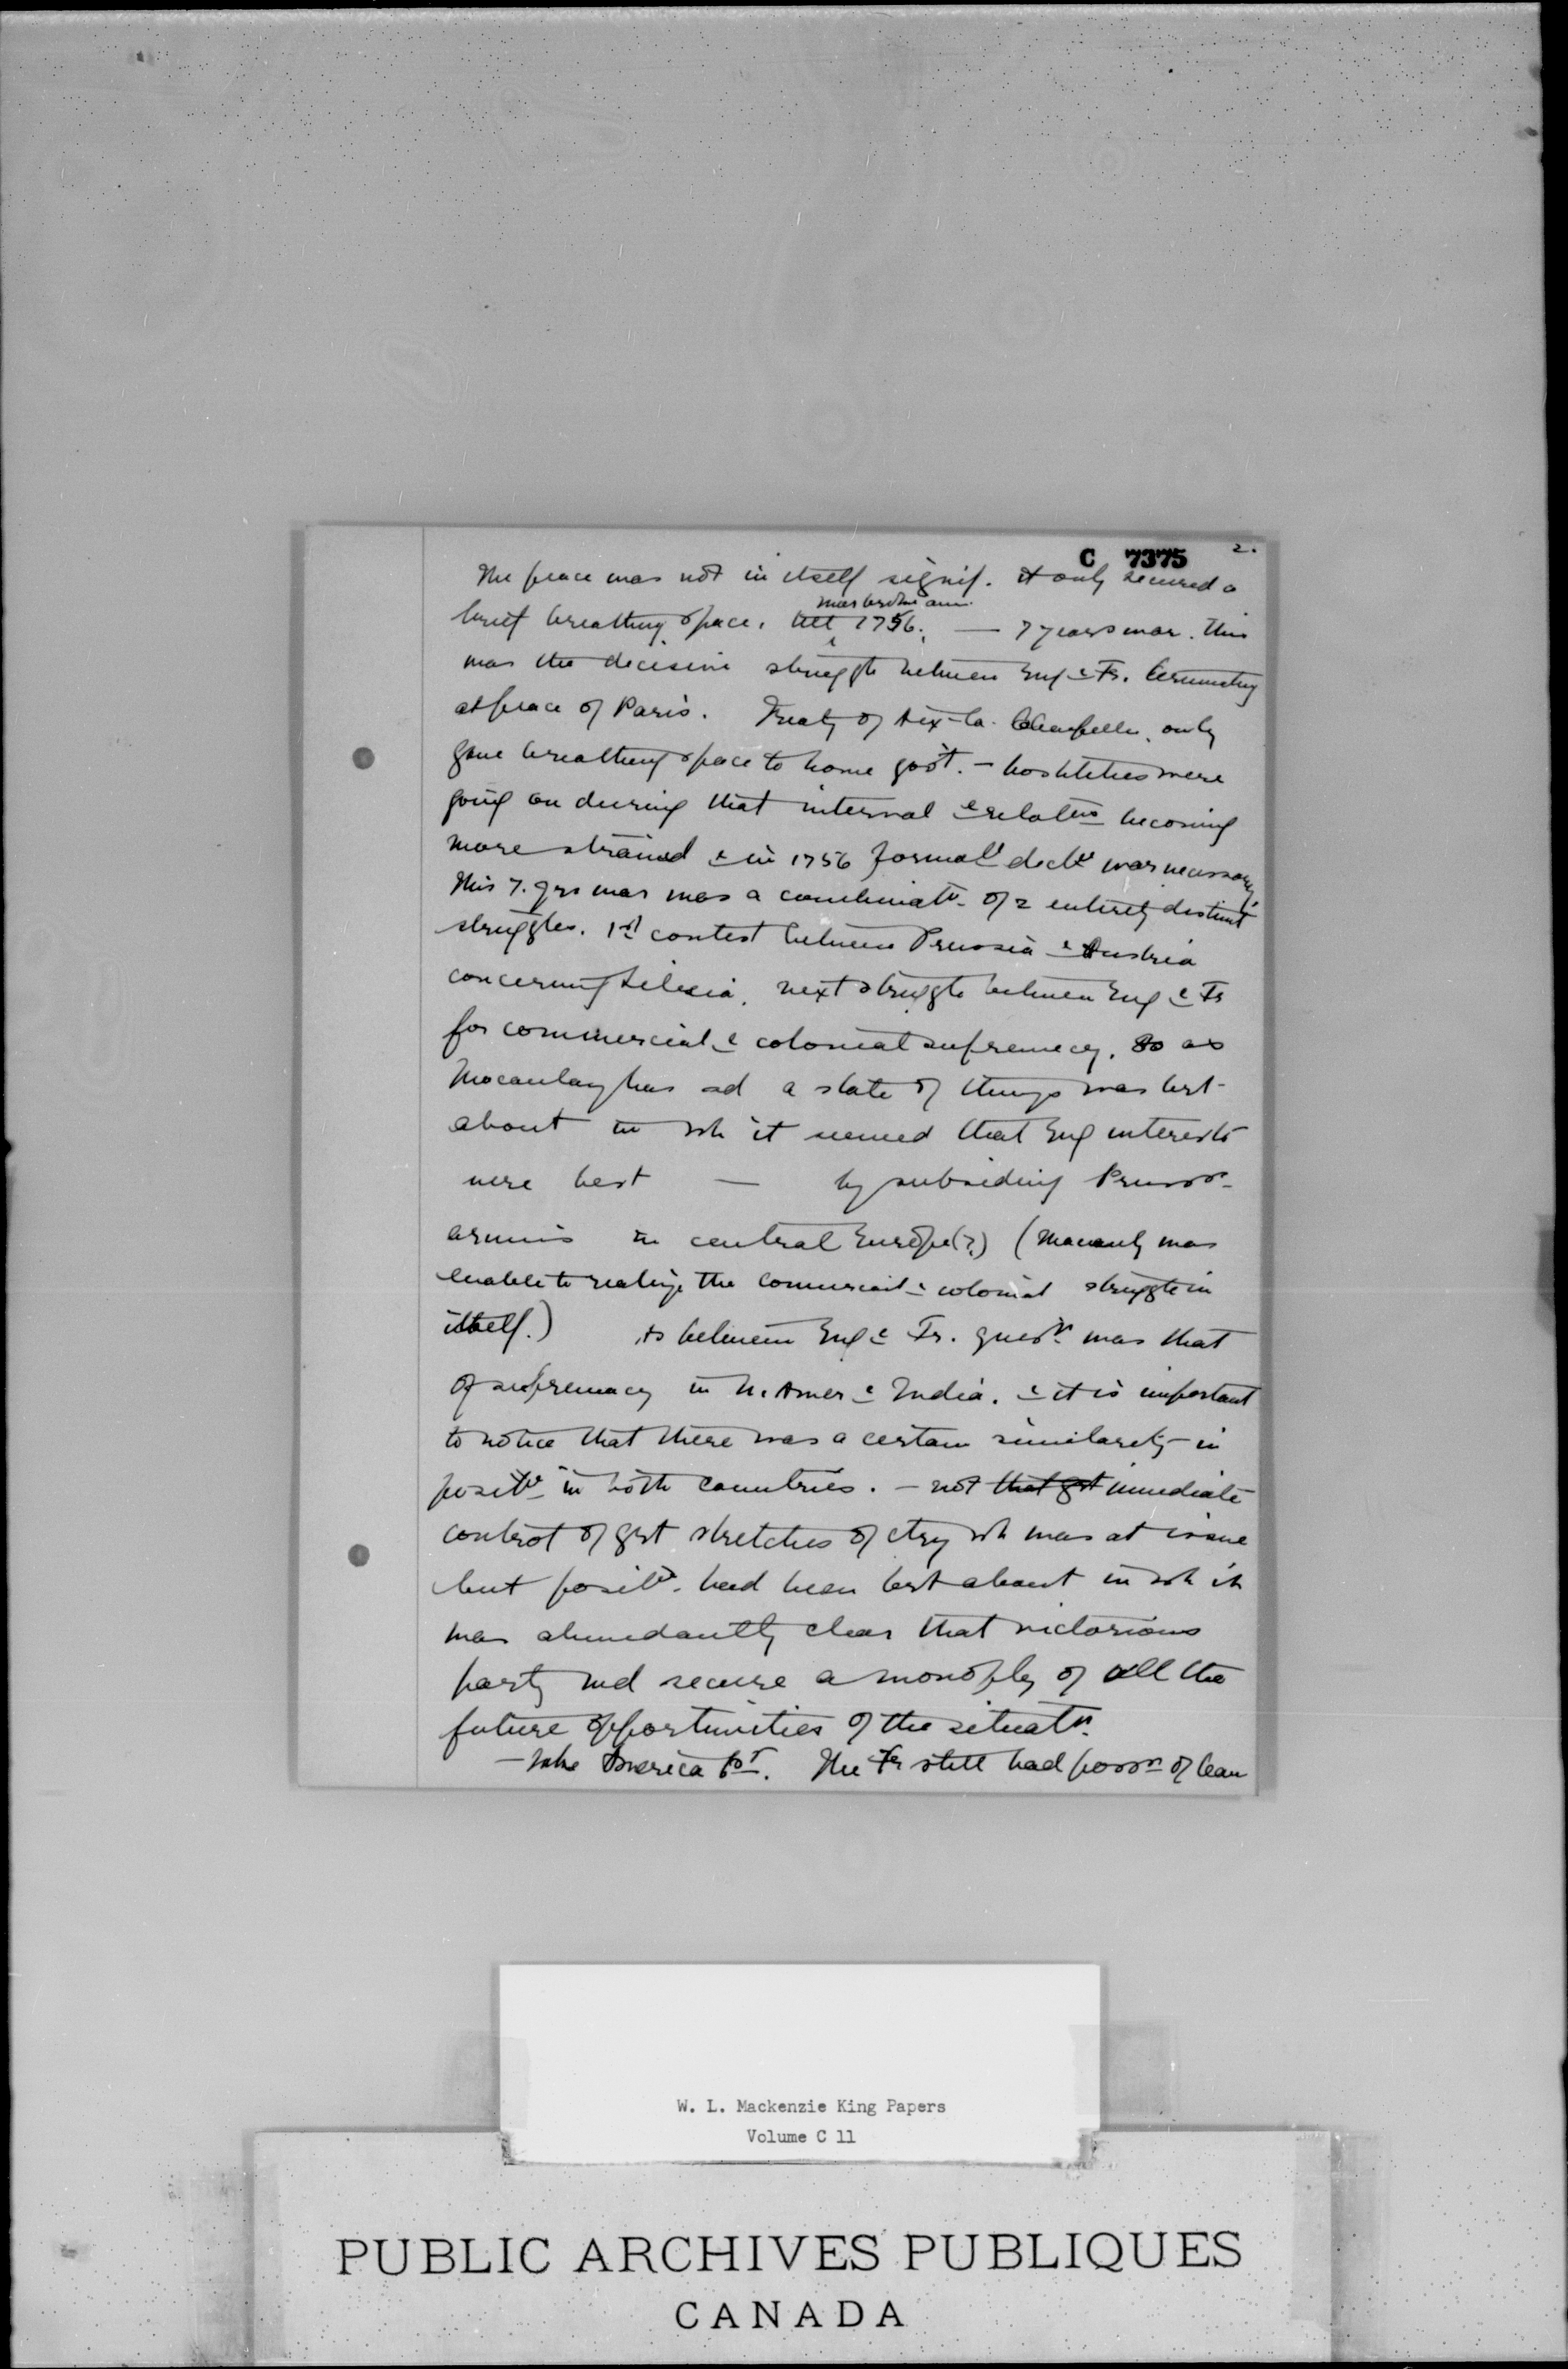 C 7375
2.
The peace was not in itself signif. it only secured a
war broke
brief breathing space. till 1756. — 7 years war. This
was the decisive struggle between Eng & Fr. terminating
at peace of Paris. Treaty of Aix-la-Chapelle only
gave breathing space to home gov't. - hostilities were
going on during that interval & relatns becoming
more strained & in 1756 formal decln war necessary.
This 7. yrs war was a combinatn of 2 entirely distinct
struggles. 1st contest between Prussia & Austria
concerning Silesia. next struggle between Eng & Fr
for commercial & colonial supremacy. So as
Macaulay has sd a state of things was brt
about in wh it seemed that Eng interests
were best — by subsiding Prussn
armies in central Europe(?) (Macauly was
unable to realize the commercial & colonial struggle in
itself.) As between Eng & Fr. questn was that
of supremacy in N. Amer & India. & it is important
to notice that there was a certain similarity in
positn in both countries. - not that grt immediate
control of grt stretches of ctry wh was at issue
but positn had been brt about in wh it
was abundantly clear that victorious
party wd secure a monoply of all the
future opportunities of the situatn.
- Take America 1st. The Fr still had possn of Can
W. L. Mackenzie King Papers
Volume C 11
PUBLIC ARCHIVES PUBLIQUES
CANADA